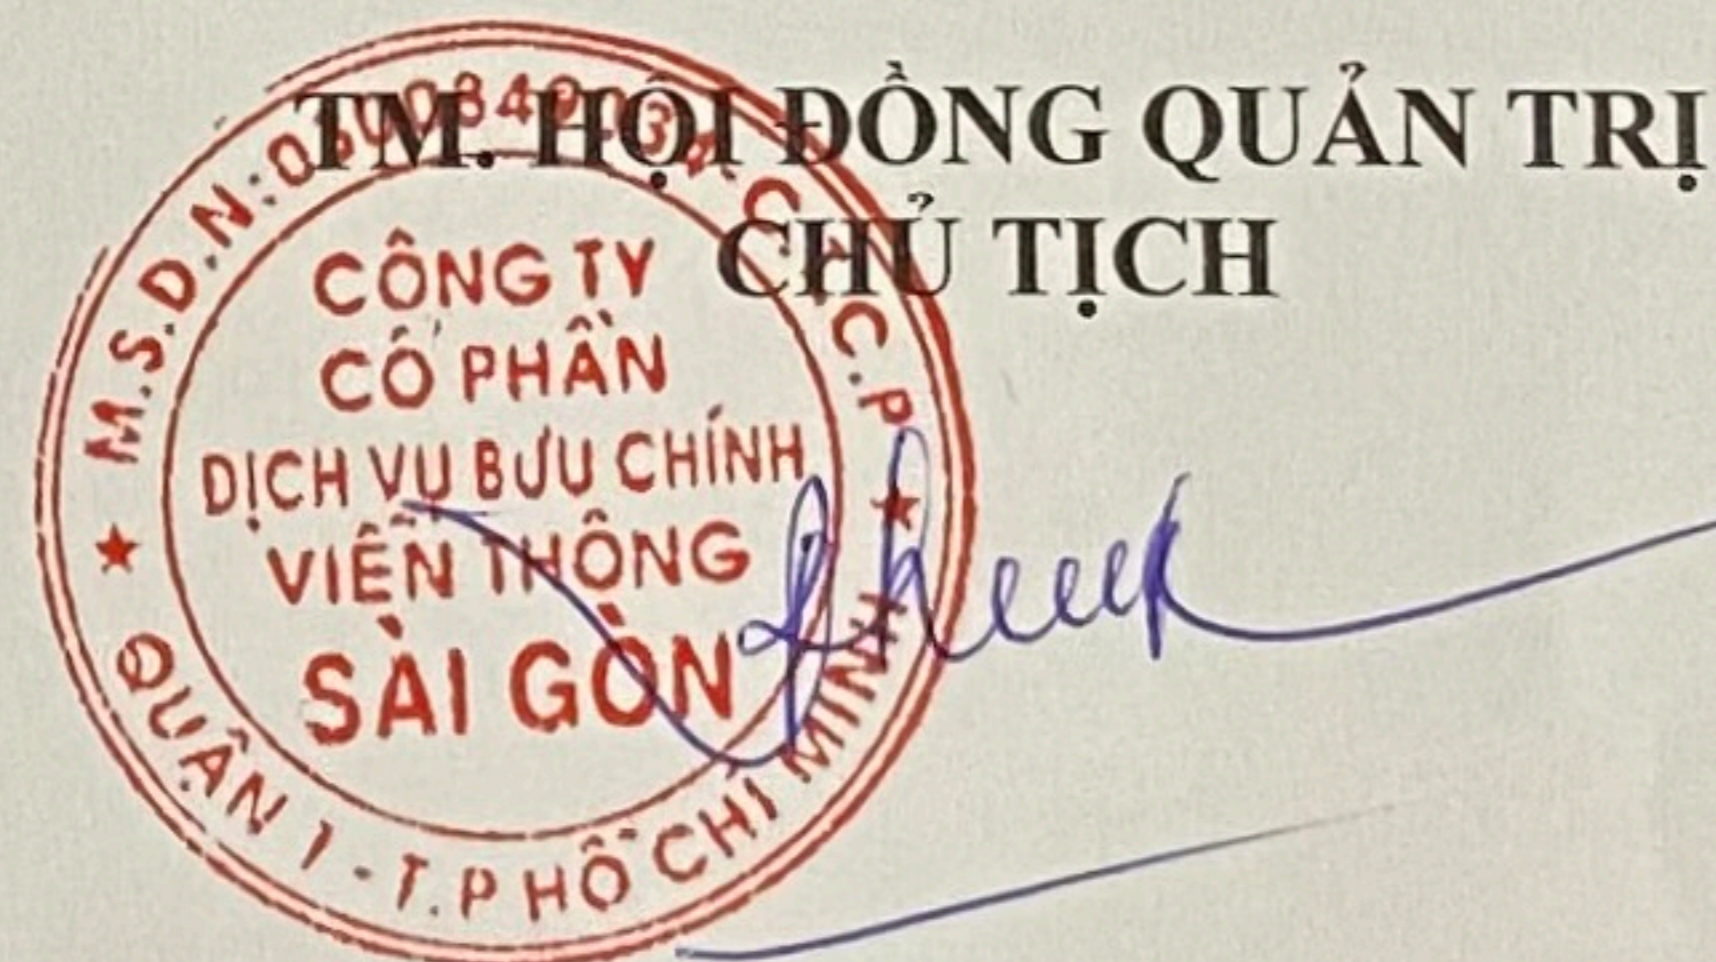 TM. HỘI ĐỒNG QUẢN TRỊ
CHỦ TỊCH
M.S.D.N: C.T.C.P
CÔNG TY
CỔ PHẦN
DỊCH VỤ BƯU CHÍNH
VIỄN THÔNG
SÀI GÒN
QUẬN 1 - T.P HỒ CHÍ MINH